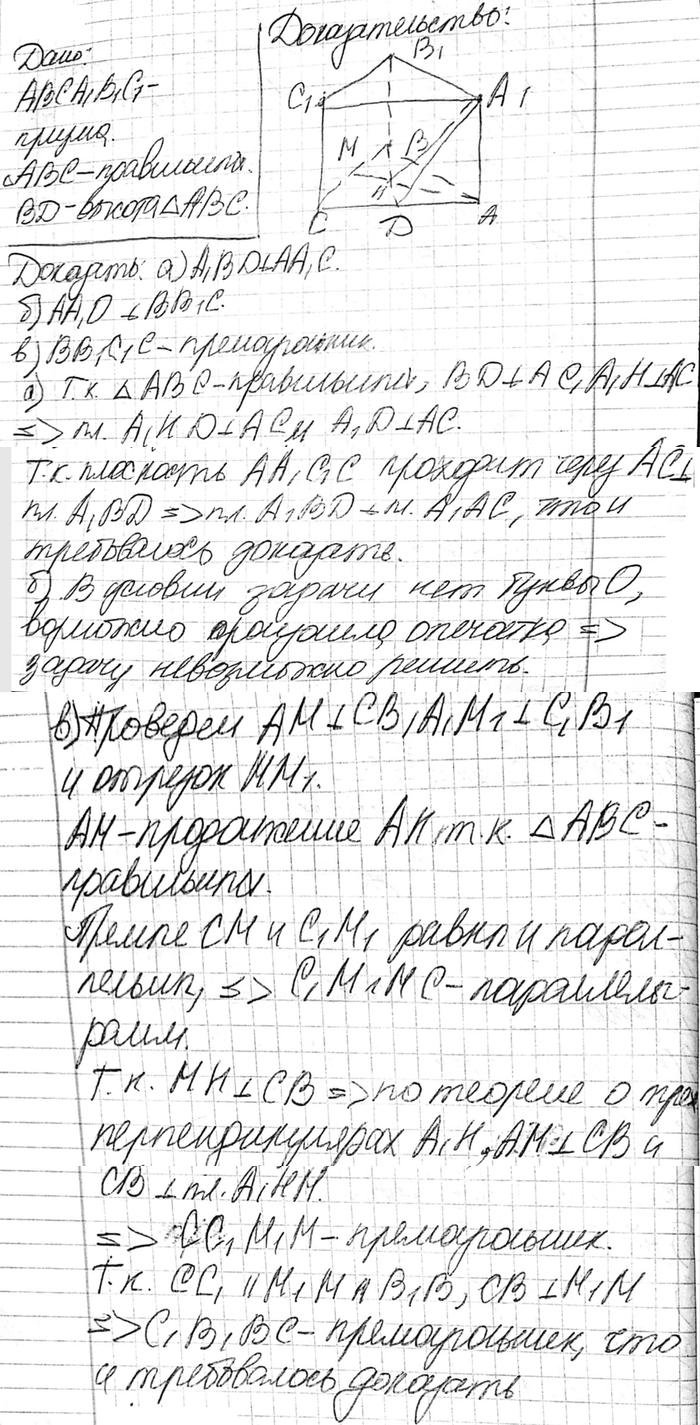 Дано:
ABCA₁B₁C₁-
призма.
ABC-правильный.
BD-высота △ABC.
Доказательство:
B₁
C₁
A₁
M
B
H
C
D
A
Доказать: а) A₁BD⊥AA₁C.
б) AA₁O ⊥ BB₁C.
в) BB₁C₁C - прямоугольник.
а) Т.к. △ABC-правильный, BD⊥AC, A₁H⊥AC
=> пл. A₁HD⊥AC и A₁D⊥AC.
Т.к. плоскость AA₁C₁C проходит через AC⊥
пл. A₁BD => пл. A₁BD ⊥ пл. A₁AC, что и
требовалось доказать.
б) В условии задачи нет буквы O,
возможно произошла опечатка =>
задачу невозможно решить.
в) Проведем AM⊥CB, A₁M₁⊥C₁B₁
и отрезок MM₁.
AM-продолжение AH, т.к. △ABC-
правильный.
CM и C₁M₁ равны и парал-
лельны, => C₁M₁MC- параллелог-
рамм.
Т.к. MH⊥CB => по теореме о трех
перпендикулярах A₁H, AM⊥CB и
CB ⊥ пл. A₁HM.
=> CC₁M₁M - прямоугольник.
Т.к. CC₁ || M₁M и B₁B, CB ⊥ M₁M
=> C₁B₁BC- прямоугольник, что
и требовалось доказать